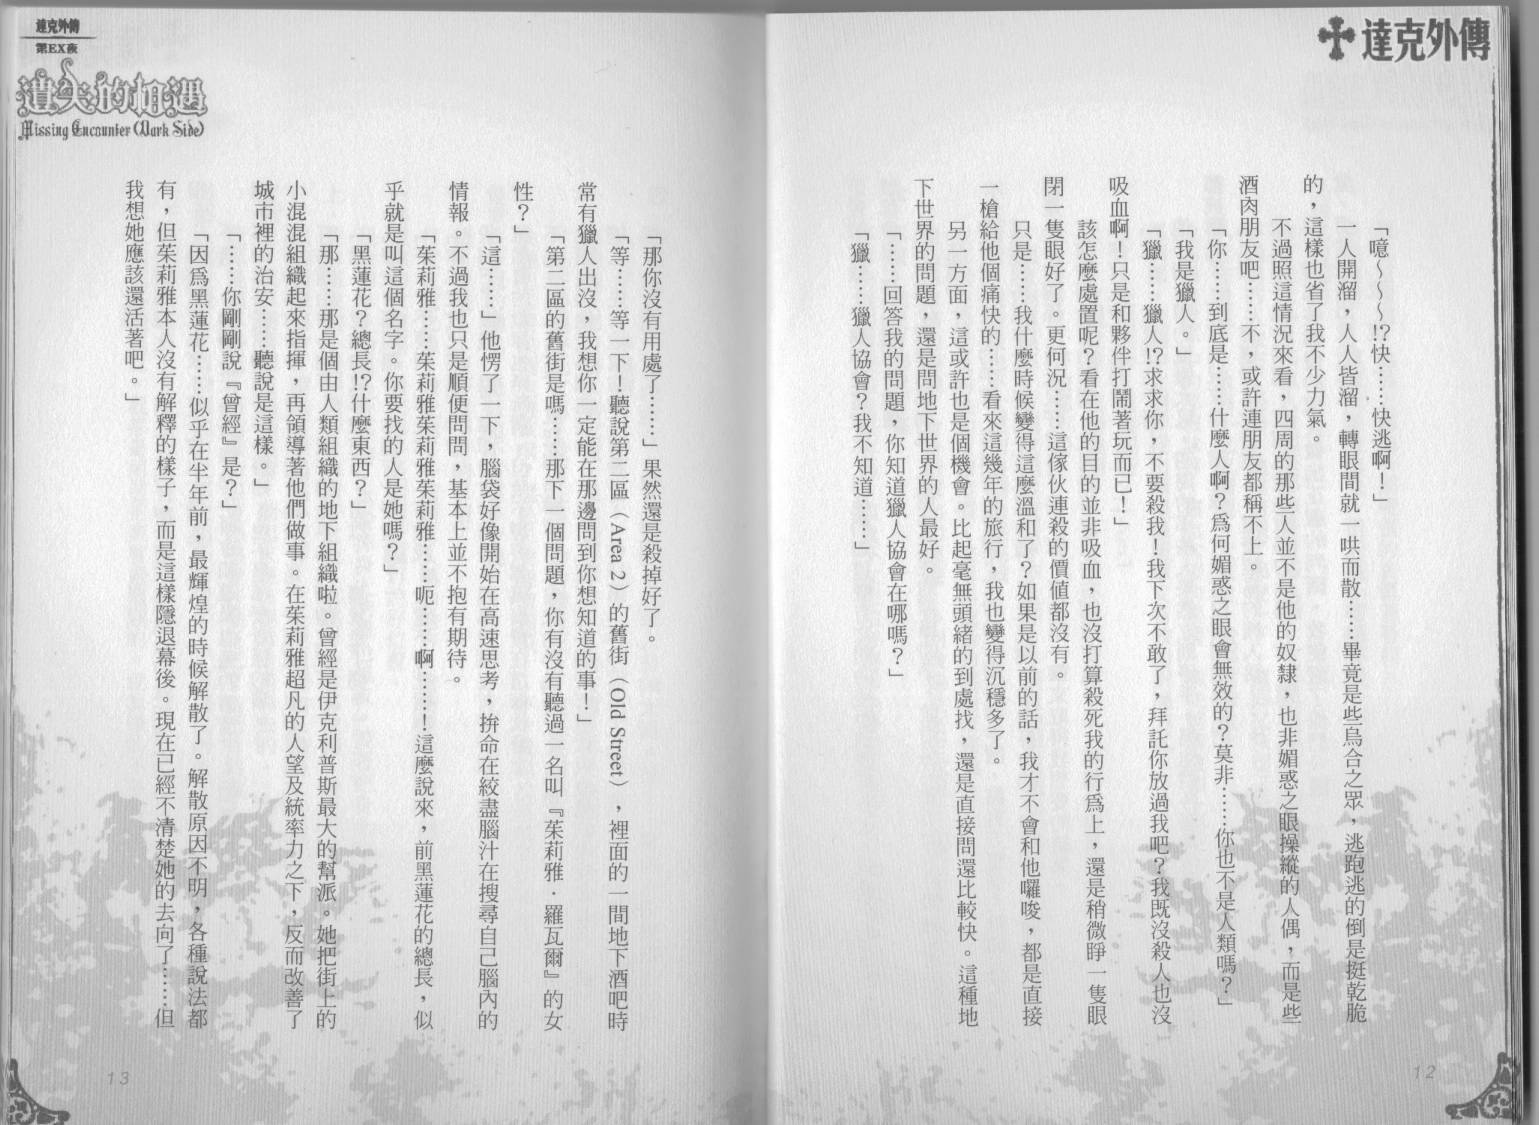 達克外傳
「噫～～～!?快……快逃啊！」
一人開溜，人人皆溜，轉眼間就一哄而散……畢竟是些烏合之眾，逃跑逃的倒是挺乾脆
的，這樣也省了我不少力氣。
不過照這情況來看，四周的那些人並不是他的奴隸，也非媚惑之眼操縱的人偶，而是些
酒肉朋友吧……不，或許連朋友都稱不上。
「你……到底是……什麼人啊？為何媚惑之眼會無效的？莫非……你也不是人類嗎？」
「我是獵人。」
「獵……獵人!?求求你，不要殺我！我下次不敢了，拜託你放過我吧？我既沒殺人也沒
吸血啊！只是和夥伴打鬧著玩而已！」
該怎麼處置呢？看在他的目的並非吸血，也沒打算殺死我的行為上，還是稍微睜一隻眼
閉一隻眼好了。更何況……這傢伙連殺的價值都沒有。
只是……我什麼時候變得這麼溫和了？如果是以前的話，我才不會和他囉唆，都是直接
一槍給他個痛快的……看來這幾年的旅行，我也變得沉穩多了。
另一方面，這或許也是個機會。比起毫無頭緒的到處找，還是直接問還比較快。這種地
下世界的問題，還是問地下世界的人最好。
「……回答我的問題，你知道獵人協會在哪嗎？」
「獵……獵人協會？我不知道……」
12
達克外傳
第EX夜
遺失的相遇
Missing Encounter (Dark Side)
「那你沒有用處了……」果然還是殺掉好了。
「等……等一下！聽說第二區（Area 2）的舊街（Old Street），裡面的一間地下酒吧時
常有獵人出沒，我想你一定能在那邊問到你想知道的事！」
「第二區的舊街是嗎……那下一個問題，你有沒有聽過一名叫『茱莉雅．羅瓦爾』的女
性？」
「這……」他愣了一下，腦袋好像開始在高速思考，拚命在絞盡腦汁在搜尋自己腦內的
情報。不過我也只是順便問問，基本上並不抱有期待。
「茱莉雅……茱莉雅茱莉雅茱莉雅……呃……啊……！這麼說來，前黑蓮花的總長，似
乎就是叫這個名字。你要找的人是她嗎？」
「黑蓮花？總長!?什麼東西？」
「那……那是個由人類組織的地下組織啦。曾經是伊克利普斯最大的幫派。她把街上的
小混混組織起來指揮，再領導著他們做事。在茱莉雅超凡的人望及統率力之下，反而改善了
城市裡的治安……聽說是這樣。」
「……你剛剛說『曾經』是？」
「因為黑蓮花……似乎在半年前，最輝煌的時候解散了。解散原因不明，各種說法都
有，但茱莉雅本人沒有解釋的樣子，而是這樣隱退幕後。現在已經不清楚她的去向了……但
我想她應該還活著吧。」
13